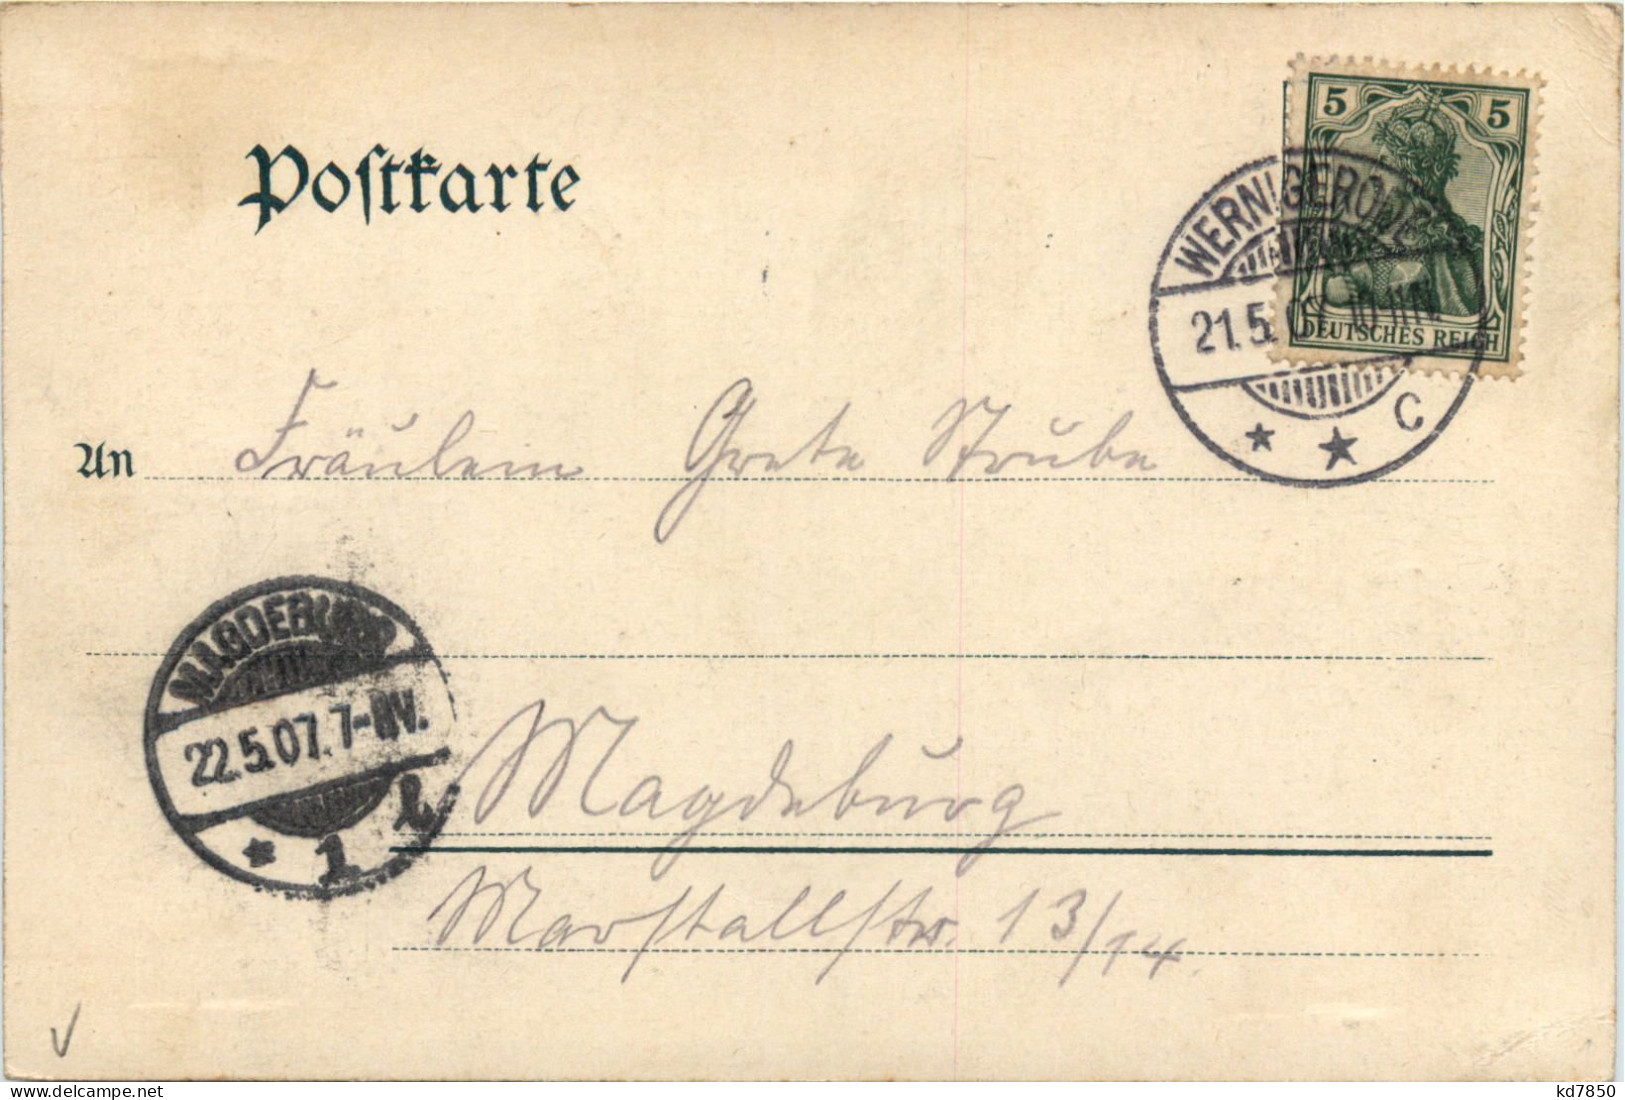 Postkarte
5 5
DEUTSCHES REICH
WERNIGERODE
21.5. 10-11N.
* * C
An Fräulein Grete Strube
MAGDEBURG
22.5.07. 7-8V.
* 1 l
Magdeburg
Marstallstr. 13/14.
delcampe.net
kd7850